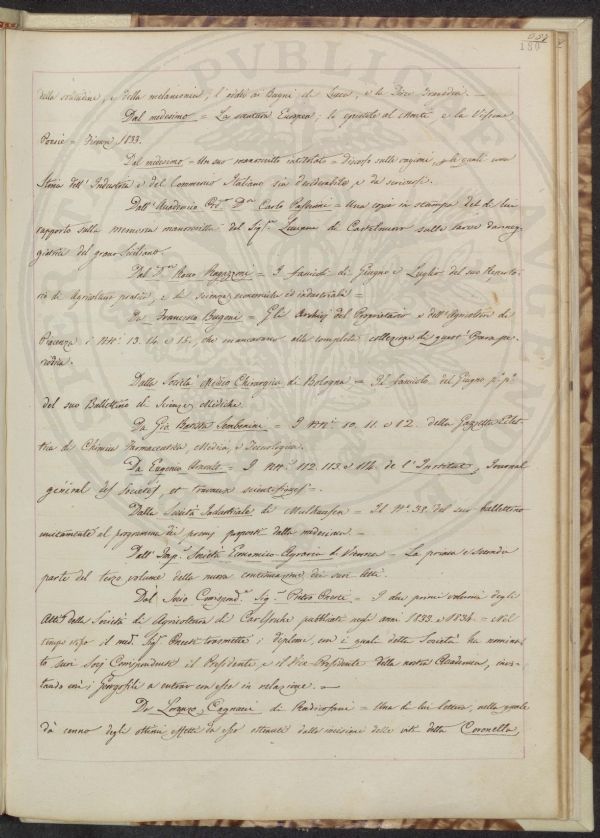 180
della solitudine, e della melanconia; l'addio ai Bagni di Lucca, e la
Dal medesimo = La sventura Europea; le epistole al Monti, e la Visione
Poesie = Firenze 1833.
Dal medesimo = Un suo manoscritto intitolato = Discorso sulle cagioni, per le quali una
Storia dell'Industria e del Commercio Italiano sia desiderabile e da scriversi.
Dall'Accademico Prof. Dr. Carlo Passerini = Una copia in stampa del di lui
rapporto sulla memoria manoscritta del Sig.r Luciano di Castelnuovo sulle larve danneg-
giatrici del grano Siciliano.
Dal D.r Rocco Ragazzoni = I fascicoli di Giugno e Luglio del suo Reperto-
rio di Agricoltura pratica, e di scienze economiche ed industriali =
Da Francesco Bugoni = Gli Archivj del Proprietario e dell'Agricoltore di
Piacenza i NN.i 13. 14. e 15., che mancavano alla completa collezione di quest'Opera pe-
riodica.
Dalla Società Medico Chirurgica di Bologna = Il fascicolo del Giugno p.p.
del suo Bullettino di Scienze Mediche.
Da Gio Batista Sembenini = I NN.i 10. 11. e 12. della Gazzetta Eclet-
tica di Chimica Farmaceutica, Medica, e Tecnologica.
Da Eugenio Arnoult = I NN.i 112. 113. e 114. de l'Institut, Journal
général des Sociétés, et travaux scientifiques =.
Dalla Società Industriale di Mulhausen = Il N.o 38. del suo bullettino
unitamente al programma dei premj proposti dalla medesima. =
Dall'Imp. Società Economico-Agraria di Vienna = La prima e seconda
parte del terzo volume della nuova continuazione dei suoi Atti.
Dal Socio Corrispond.e Sig.r Pietro Oneste = I due primi volumi degli
Atti della Società di Agricoltura di Carlsruhe pubblicati negli anni 1833. e 1834. = Nel
tempo stesso il med.o Sig.r Oneste trasmette i diplomi, con i quali detta Società ha nomina-
to suoi Socj Corrispondenti il Presidente, e il Vice Presidente della nostra Accademia, invi-
tando così i Georgofili a entrar con essa in relazione. =
Da Lorenzo Cagnacci di Radicofani = Una di lui lettera, nella quale
dà cenno degli ottimi effetti da esso ottenuti dalla incisione delle viti detta Coronella,